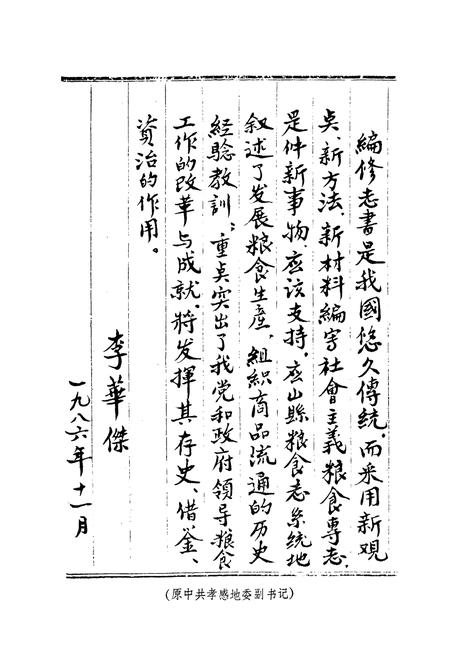 編修志書是我國悠久傳統，而采用新观
点、新方法、新材料編写社會主義粮食專志，
是件新事物，应该支持。应山縣粮食志系统地
叙述了发展粮食生産，組織商品流通的历史
經驗教訓；重点突出了我党和政府領导粮食
工作的改革与成就。将发揮其存史、借鉴、
資治的作用。
李華傑
一九八六年十一月
（原中共孝感地委副书记）